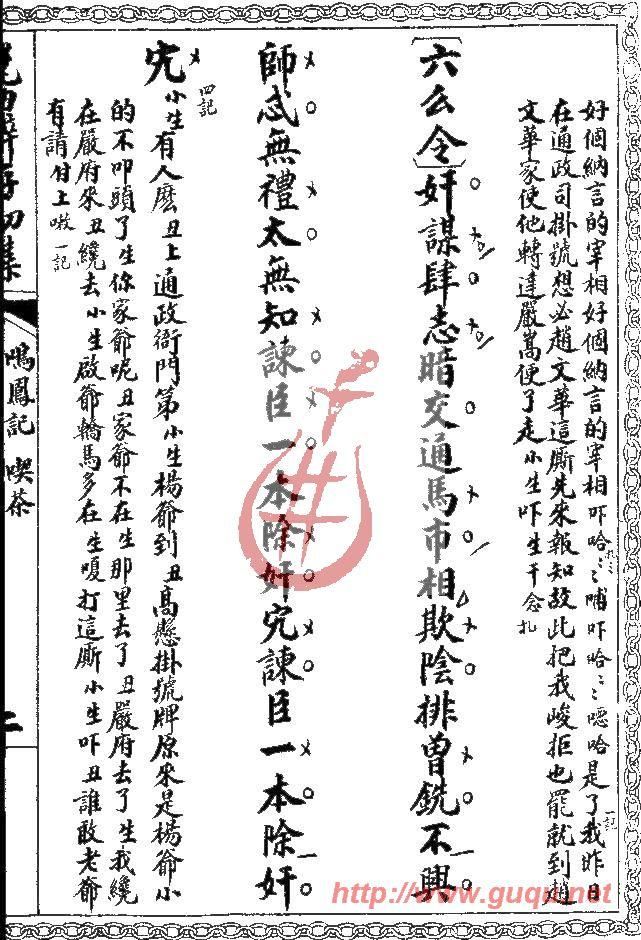 好個納言的宰相好個納言的宰相吓哈〻〻哺吓哈〻〻噁哈是了我昨日
在通政司掛號想必趙文華這厮先來報知故此把我峻拒也罷就到趙
文華家使他轉達嚴嵩便了走小生吓生干念扎
〔六么令〕奸謀肆志暗交通馬市相欺陰排曾銑不興
師忒無禮太無知諫臣一本除奸宄諫臣一本除奸
宄小生有人麼丑上通政衙門第小生楊爺到丑高懸掛號牌原來是楊爺小
的不叩頭了生你家爺呢丑家爺不在生那里去了丑嚴府去了生我纔
在嚴府來丑纔去小生啟爺轎馬多在生嗄打這厮小生吓丑誰敢老爺
有請付上嗷一記
四記
一記
鳴鳳記 喫茶
二
http://www.guqu.net